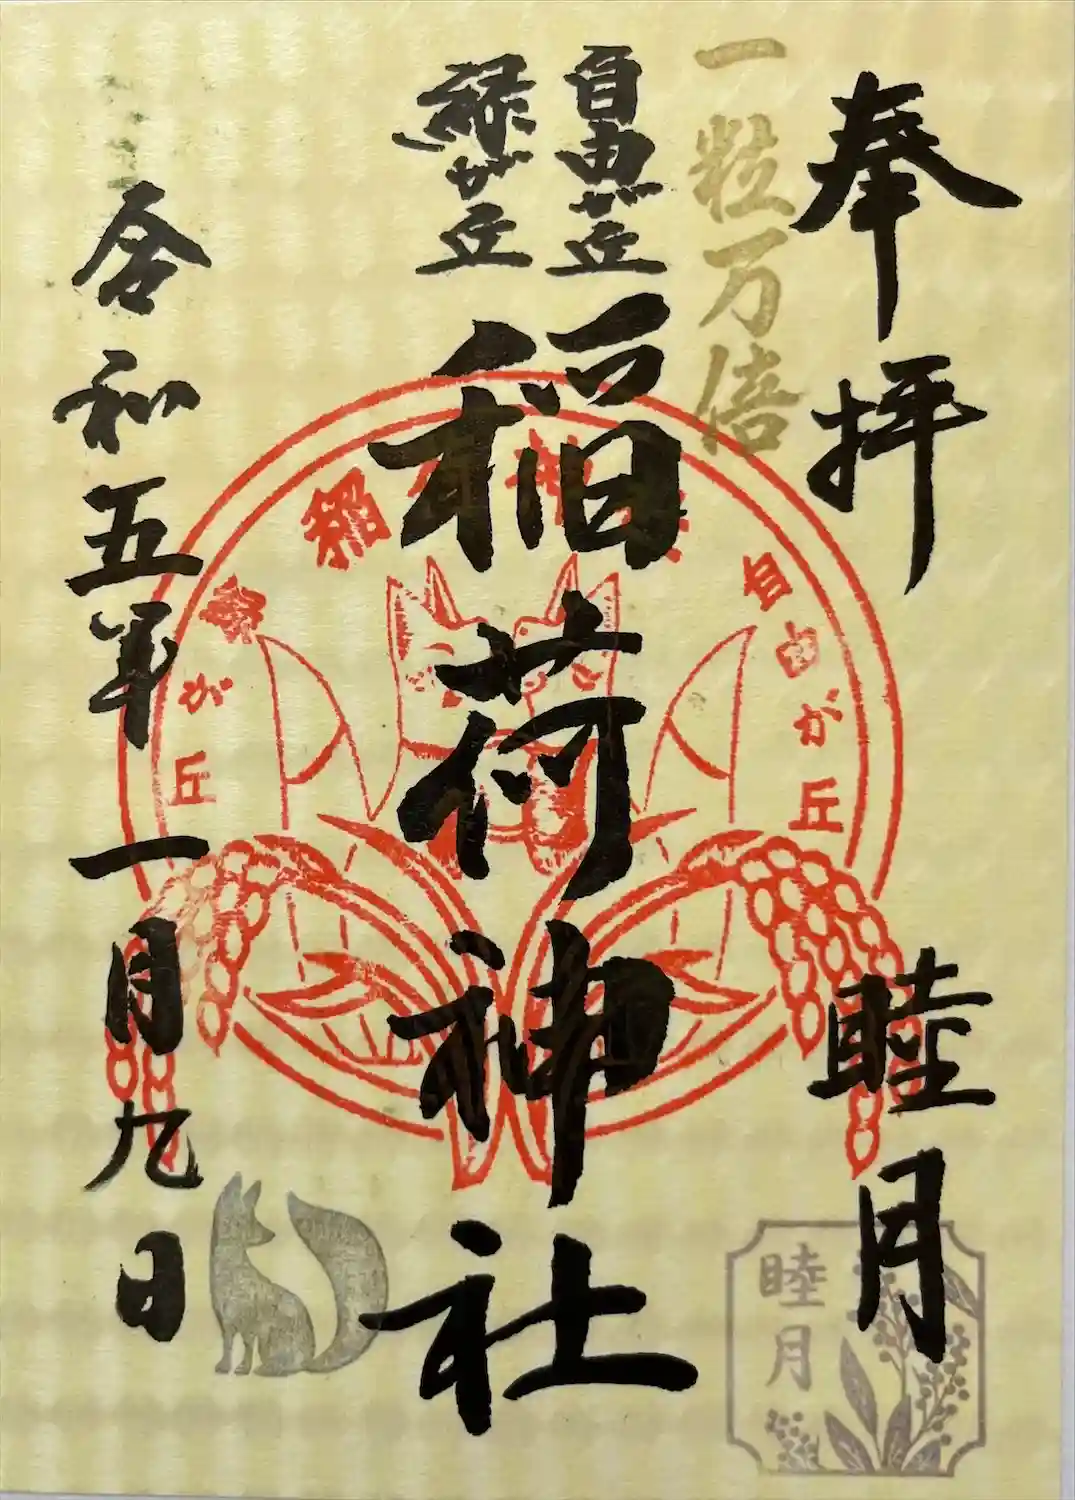 奉拝
睦月
一粒万倍
自由が丘
緑が丘
稲荷神社
令和五年一月九日
稲荷神社
自由が丘
緑が丘
睦月